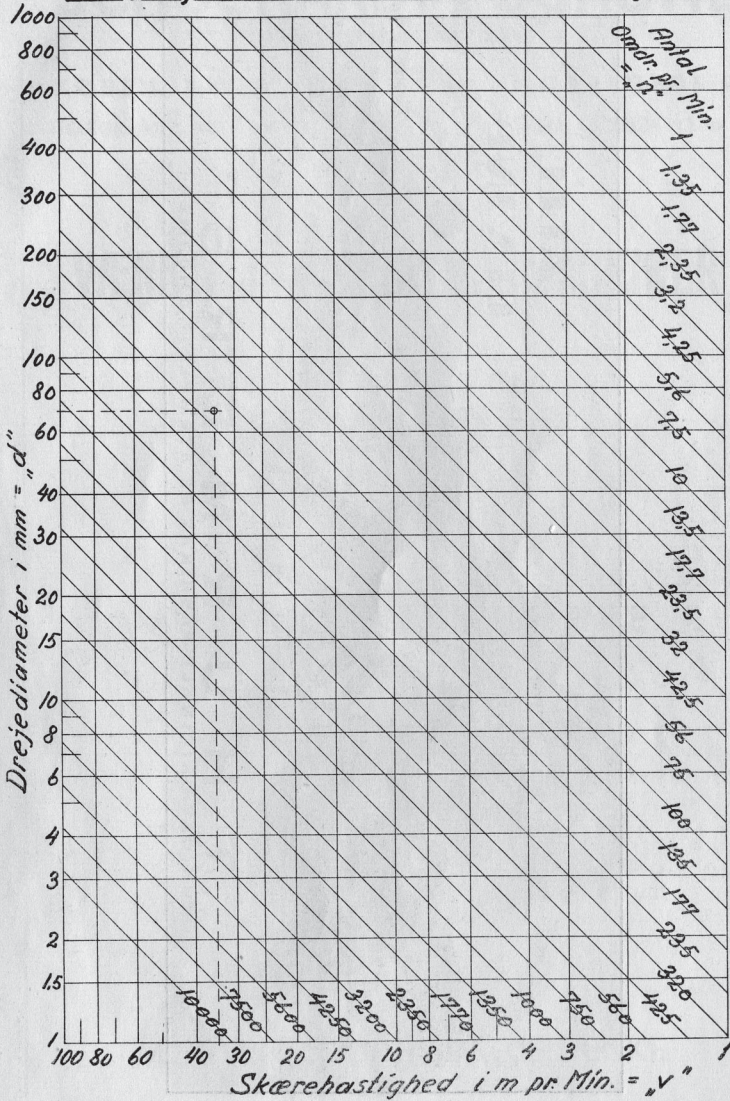 1000
800
600
400
300
200
150
100
80
60
40
30
20
15
10
8
6
4
3
2
1.5
1
Drejediameter i mm = „d"
Antal
Omdr. pr. Min.
= „n"
1
1,35
1,77
2,35
3,2
4,25
5,6
7,5
10
13,5
17,7
23,5
32
42,5
56
75
100
135
177
235
320
425
10000 7500 5600 4250 3200 2350 1770 1350 1000 750 560
100 80 60 40 30 20 15 10 8 6 4 3 2 1
Skærehastighed i m pr. Min. = „v"